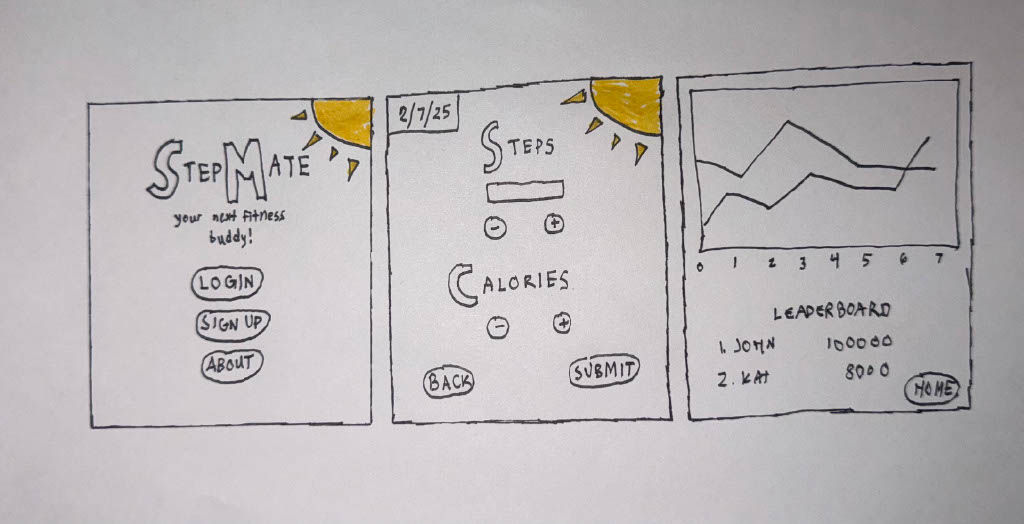 STEPMATE
your next fitness
buddy!
LOGIN
SIGN UP
ABOUT
2/7/25
STEPS
- +
CALORIES
- +
BACK SUBMIT
0 1 2 3 4 5 6 7
LEADERBOARD
1. JOHN 100000
2. KAT 8000
HOME